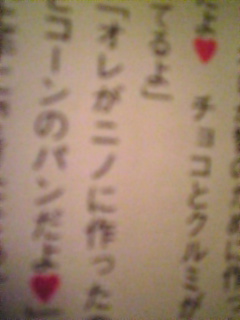 のために作
だよ♥ チョコとクルミが
てるよ」
「オレがニノに作った
コーンのパンだよ♥」